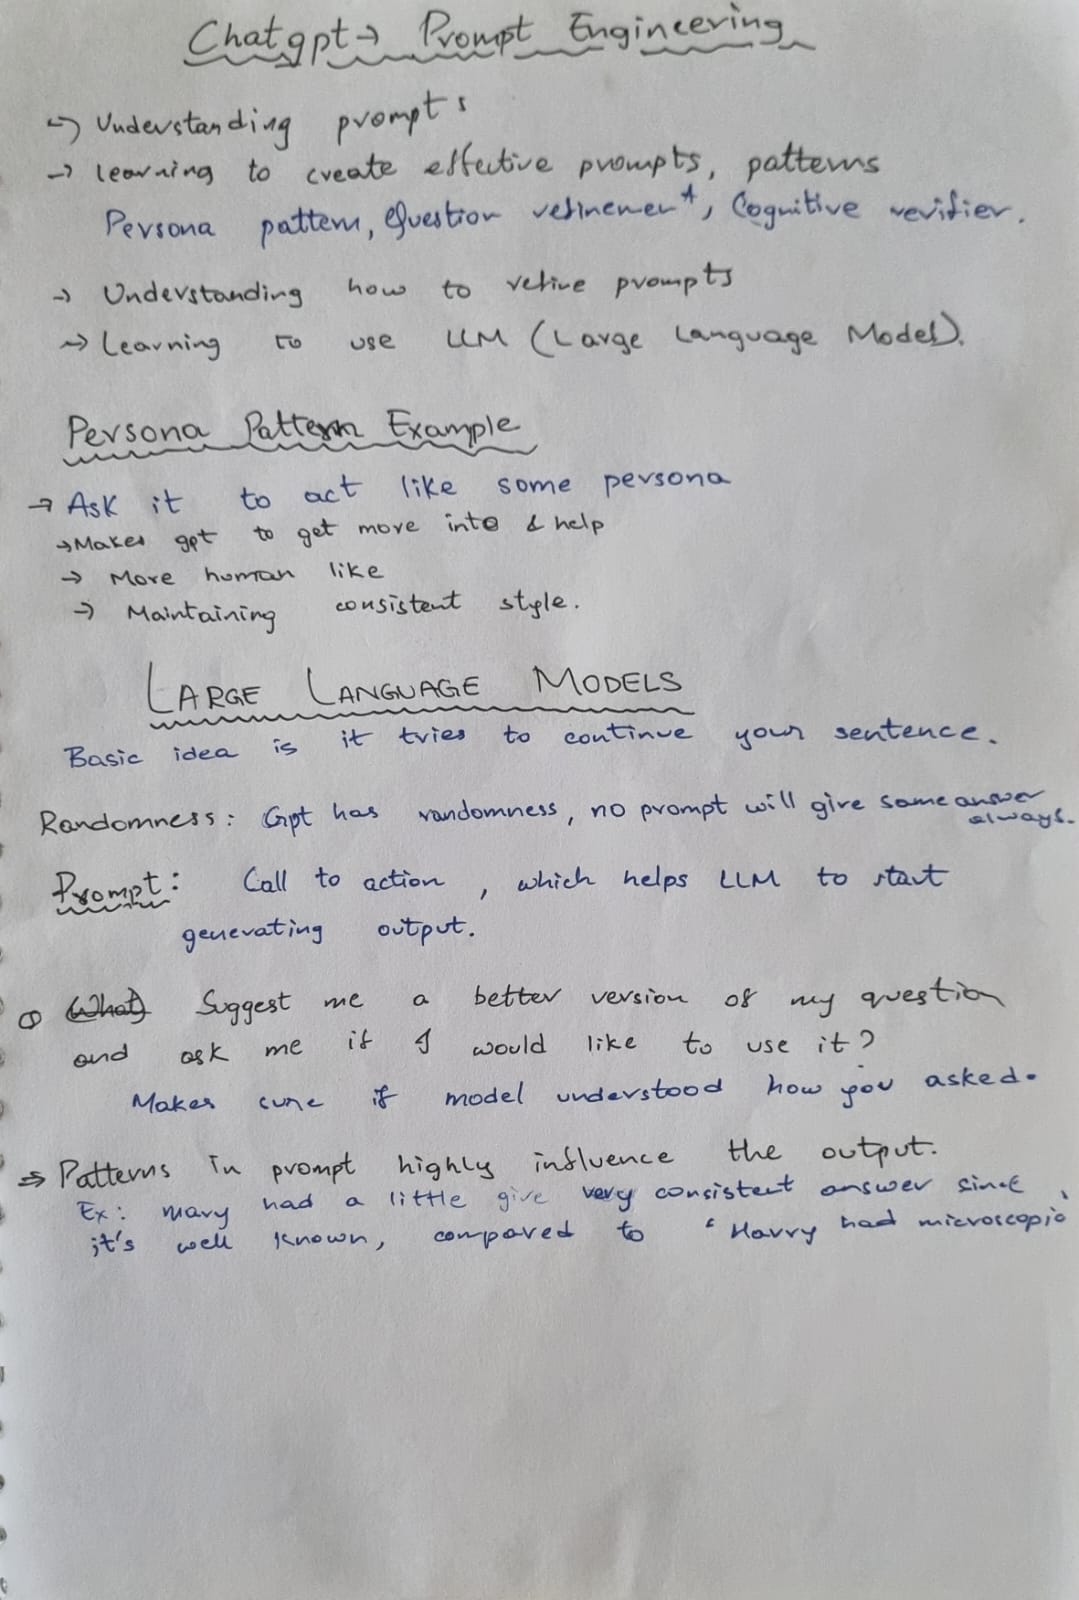 Chatgpt → Prompt Engineering
→ Understanding prompts
→ Learning to create effective prompts, patterns
Persona pattern, Question refinemen*, Cognitive verifier.
→ Understanding how to refine prompts
→ Learning to use LLM (Large Language Model).
Persona Pattern Example
→ Ask it to act like some persona
→ Makes gpt to get more into & help
→ More human like
→ Maintaining consistent style.
LARGE LANGUAGE MODELS
Basic idea is it tries to continue your sentence.
Randomness: Gpt has randomness, no prompt will give same answer
always.
Prompt: Call to action, which helps LLM to start
generating output.
(What) Suggest me a better version of my question
and ask me if I would like to use it?
Makes sure if model understood how you asked.
⇒ Patterns in prompt highly influence the output.
Ex: mary had a little give very consistent answer since,
it's well known, compared to 'Harry had microscopic